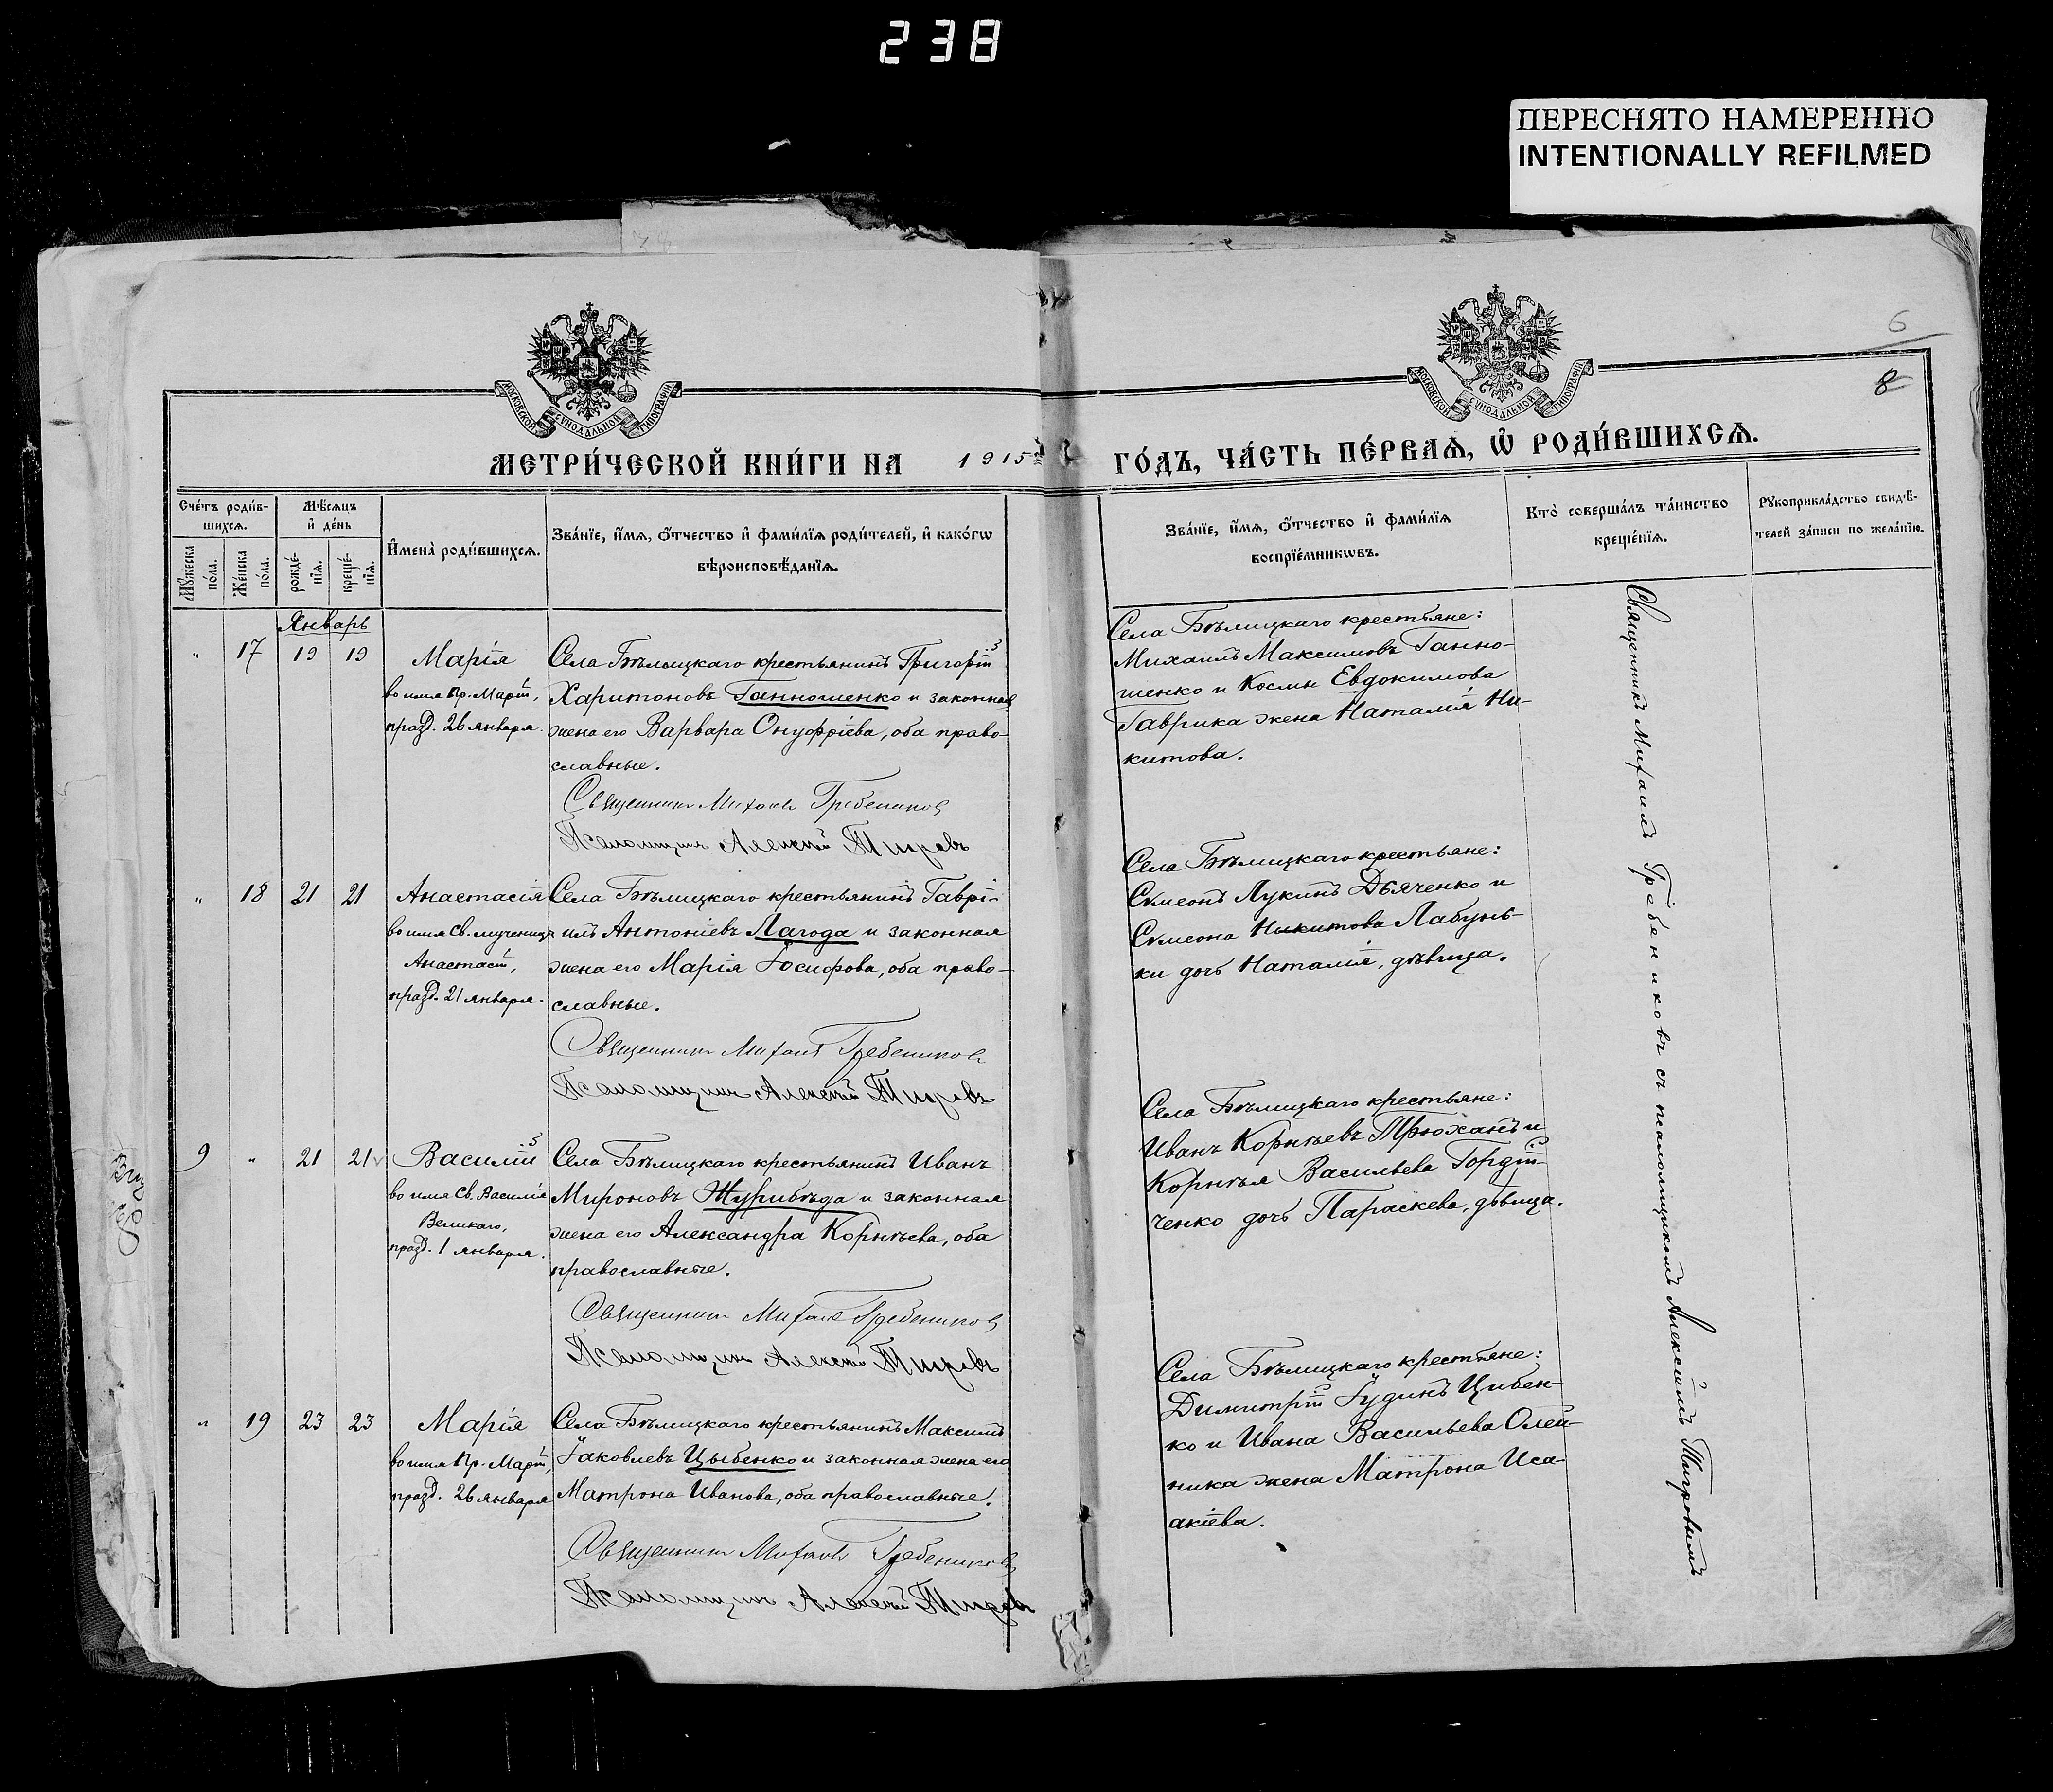 238
ПЕРЕСНЯТО НАМЕРЕННО
INTENTIONALLY REFILMED
6
8
МОСКОВСКОЙ СѴНОДАЛЬНОЙ ТИПОГРАФІИ
МОСКОВСКОЙ СѴНОДАЛЬНОЙ ТИПОГРАФІИ
МЕТРИ́ЧЕСКОЙ КНИ́ГИ НА 1915 ГО́ДЪ, ЧА́СТЬ ПЕ́РВАѦ, Ѿ РОДИ́ВШИХСѦ.
Сче́тъ роди́в-
шихсѧ.
Мꙋ́жеска
по́ла.
Же́нска
по́ла.
Мѣ́сѧцъ
и҆ де́нь
рожде́-
нїѧ.
креще́-
нїѧ.
И҆мена̀ роди́вшихсѧ.
Зва́нїе, и҆́мѧ, ѻ҆́тчество и҆ фами́лїѧ роди́телей, и҆ како́гѡ
вѣроисповѣ́данїѧ.
Зва́нїе, и҆́мѧ, ѻ҆́тчество и҆ фами́лїѧ
воспрїе́мникѡвъ.
Кто̀ соверша́лъ та́инство
креще́нїѧ.
Рꙋкоприкла́дство свидѣ́-
телей за́писи по жела́нїю.
Январь
" 17 19 19
Марія
во имя Пр. Маріи,
празд. 26 января.
Села Бѣлицкаго крестьянинъ Григорій
Харитоновъ Ганношенко и законная
жена его Варвара Онуфріева, оба право-
славные.
Священникъ Михаилъ Гребениковъ
Псаломщикъ Алексѣй Тигровъ
Села Бѣлицкаго крестьяне:
Михаилъ Максимовъ Ганно-
шенко и Космы Евдокимова
Гаврика жена Наталія Ни-
китова.
" 18 21 21
Анастасія
во имя Св. мученицы
Анастасіи,
празд. 21 января.
Села Бѣлицкаго крестьянинъ Гаврі-
илъ Антоніевъ Лагода и законная
жена его Марія Іосифова, оба право-
славные.
Священникъ Михаилъ Гребениковъ
Псаломщикъ Алексѣй Тигровъ
Села Бѣлицкаго крестьяне:
Сѵмеонъ Лукинъ Дьяченко и
Сѵмеона Никитова Лабунь-
ки дочь Наталія, дѣвица.
9 " 21 21
Василій
во имя Св. Василія
Великаго,
празд. 1 января.
Села Бѣлицкаго крестьянинъ Иванъ
Мироновъ Журибѣда и законная
жена его Александра Корнѣева, оба
православные.
Священникъ Михаилъ Гребениковъ
Псаломщикъ Алексѣй Тигровъ
Села Бѣлицкаго крестьяне:
Иванъ Корнѣевъ Трюханъ и
Корнѣя Васильева Гордій-
ченко дочь Параскева, дѣвица.
" 19 23 23
Марія
во имя Пр. Маріи,
празд. 26 января
Села Бѣлицкаго крестьянинъ Максимъ
Іаковлевъ Цыбенко и законная жена его
Матрона Иванова, оба православные.
Священникъ Михаилъ Гребениковъ
Псаломщикъ Алексѣй Тигровъ
Села Бѣлицкаго крестьяне:
Димитрій Іудинъ Цибен-
ко и Ивана Васильева Олей-
ника жена Матрона Иса-
акіева.
Священникъ Михаилъ Гребениковъ съ псаломщикомъ Алексѣемъ Тигровымъ